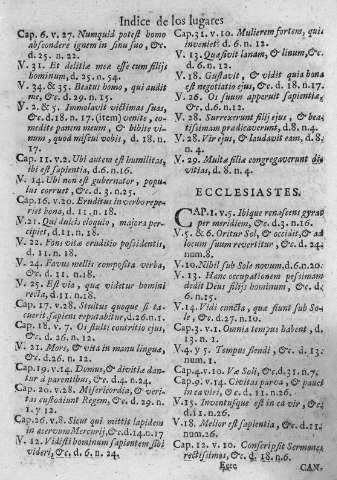 Indice de los lugares
Cap. 6. v. 27. Numquid potest homo
abscondere ignem in sinu suo, &c.
d. 25. n. 22.
V. 31. Et delitiæ meæ esse cum filijs
hominum, d. 25. n. 54.
V. 34. & 35. Beatus homo, qui audit
me, &c. d. 29. n. 15.
V. 2. & 5. Immolavit victimas suas,
&c. d. 18. n. 17. (item) venite, co-
medite panem meum, & bibite vi-
num, quod miscui vobis, d. 18. n.
17.
Cap. 11. v. 2. Ubi autem est humilitas,
ibi est sapientia, d. 6. n. 16.
V. 14. Ubi non est gubernator, popu-
lus corruet, &c. d. 3. n. 25.
Cap. 16. v. 20. Eruditus in verbo repe-
riet bona, d. 11. n. 18.
V. 21. Qui dulcis eloquio, majora per-
cipiet, d. 11. n. 18.
V. 22. Fons vitæ eruditio possidentis,
d. 11. n. 18.
V. 24. Favus mellis composita verba,
&c. d. 11. n. 18.
V. 25. Est via, quæ videtur homini
recta, d. 11. n. 18.
Cap. 17. v. 28. Stultus quoque si ta-
cuerit sapiens reputabitur, d. 26. n. 1.
Cap. 18. v. 7. Os stulti contritio ejus,
&c. d. 26. n. 12.
V. 21. Mors, & vita in manu linguæ,
&c. d. 26. n. 12.
Cap. 19. v. 14. Domus, & divitiæ dan-
tur à parentibus, &c. d. 4. n. 24.
Cap. 20. v. 28. Misericordia, & veri-
tas custodiunt Regem, &c. d. 29. n.
1. y 12.
Cap. 26. v. 8. Sicut qui mittit lapidem
in acervum Mercurij, &c. d. 14. n. 17
V. 12. Vidisti hominem sapientem sibi
videri, &c. d. 6. n. 24.
Cap. 31. v. 10. Mulierem fortem, quis
inveniet? d. 6. n. 12.
V. 13. Quæsivit lanam, & linum, &c.
d. 6. n. 12.
V. 18. Gustavit, & vidit quia bona
est negotiatio ejus, &c. d. 18. n. 17.
V. 26. Os suum apperuit sapientiæ,
&c. d. 6. n. 12.
V. 28. Surrexerunt filij ejus, & bea-
tissimam prædicaverunt, d. 8. n. 4.
V. 28. Vir ejus, & laudavit eam, d. 8.
n. 4.
V. 29. Multæ filiæ congregaverunt di-
vitias, d. 8. n. 4.
ECCLESIASTES.
CAP. 1. v. 5. Ibique renascens gyrat
per meridiem, &c. d. 3. n. 16.
V. 5. & 6. Oritur Sol, & occidit, & ad
locum suum revertitur, &c. d. 24.
num. 8.
V. 10. Nihil sub Sole novum, d. 6. n. 20.
V. 13. Hanc occupationem pessimam
dedit Deus filijs hominum, &c. d.
6. n. 15.
V. 14. Vidi cuncta, quæ fiunt sub So-
le, &c. d. 27. n. 10.
Cap. 3. v. 1. Omnia tempus habent, d.
13. n. 1.
V. 4. y 5. Tempus flendi, &c. d. 13.
num. 1.
Cap. 4. v. 10. Væ Soli, &c. d. 31. n. 7.
Cap. 9. v. 14. Civitas parva, & pauci
in ea viri, &c. d. 11. n. 26.
V. 15. Inventusque est in ea vir, &c.
d. 11. n. 26.
V. 18. Melior est sapientia, &c. d. 11.
num. 26.
Cap. 12. v. 10. Conscripsit Sermones
rectissimos, &c. d. 18. n. 6.
CAN-